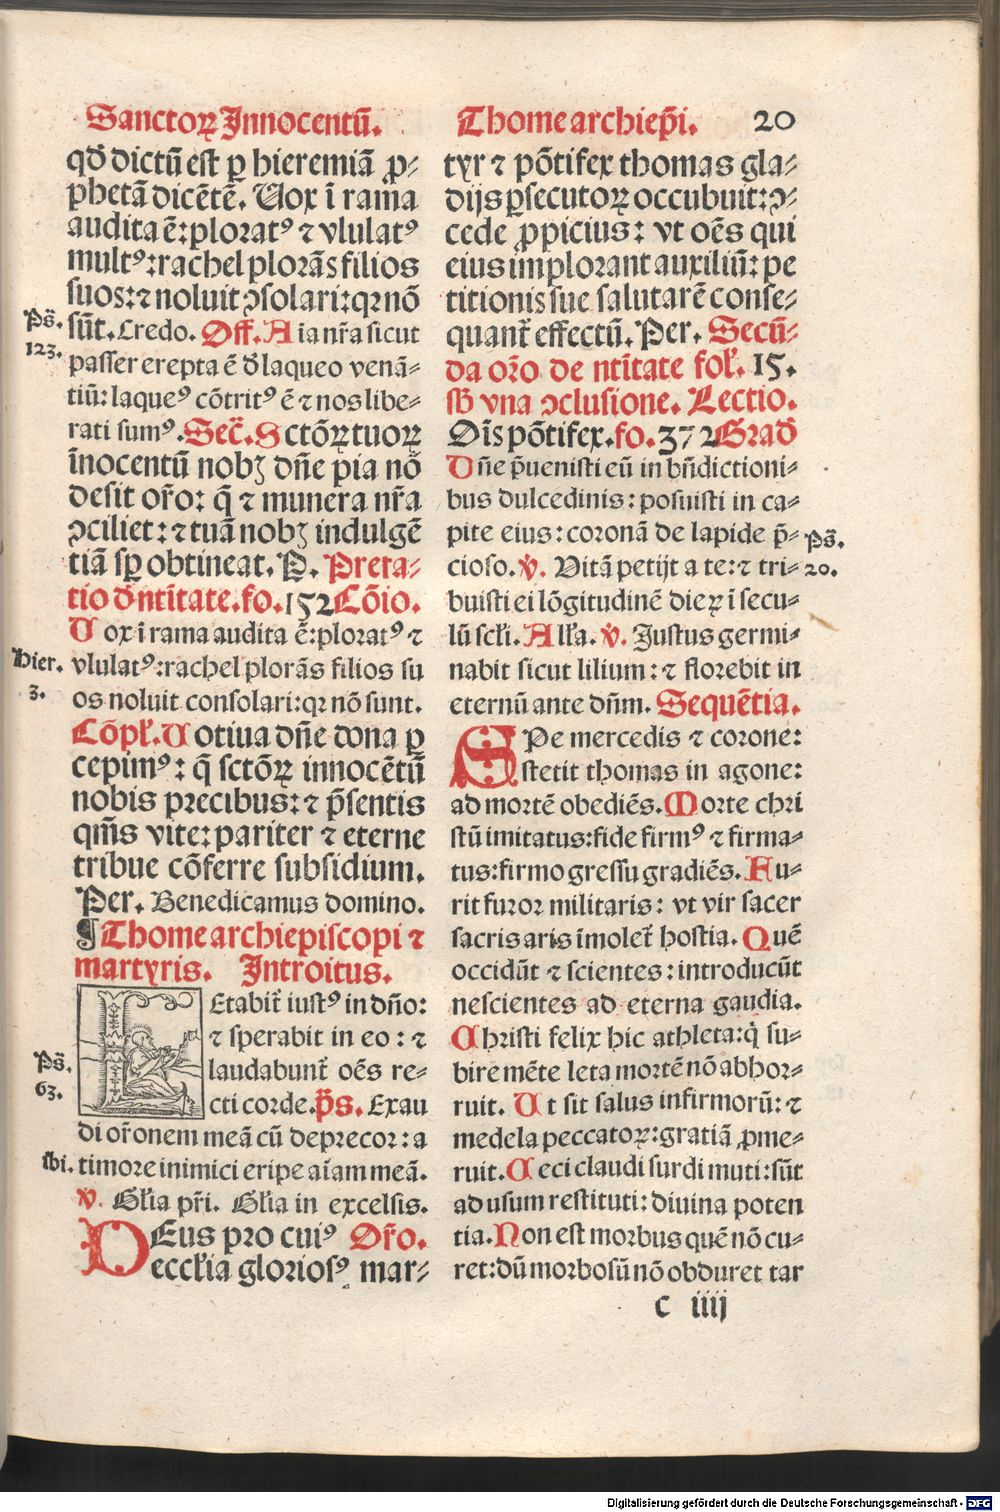 Sanctoꝝ Innocentū.
qd̄ dictū est ꝑ hieremiā ꝓ⸗
phetā dicētē. Uox ī rama
audita ē: ploratꝰ ⁊ vlulatꝰ
multꝰ: rachel plorās filios
suos: ⁊ noluit ↄsolari: qꝛ nō
Ps̄. 123.
sūt. Credo. Off. Aīa nr̄a sicut
passer erepta ē d̄ laqueo venā⸗
tiū: laqueꝰ cōtritꝰ ē ⁊ nos libe⸗
rati sumꝰ. Sec̄. Sctōꝝ tuoꝝ
īnocentū nobꝫ dn̄e pia nō
desit or̄o: q̄ ⁊ munera nr̄a
ↄciliet: ⁊ tuā nobꝫ indulgē
tiā sꝑ obtineat. P. Prefa⸗
tio d̄ ntītate. fo. 152 Cōio.
Uox ī rama audita ē: ploratꝰ ⁊
Hier. 3.
vlulatꝰ: rachel plorās filios su
os noluit consolari: qꝛ nō sunt.
Cōpł. Uotiua dn̄e dona ꝑ
cepimꝰ: q̄ sctōꝝ innocētū
nobis precibus: ⁊ p̄sentis
qm̄s vite: pariter ⁊ eterne
tribue cōferre subsidium.
Per. Benedicamus domino.
¶ Thome archiepiscopi ⁊
martyris. Introitus.
LEtabit̄ iustꝰ in dn̄o:
⁊ sperabit in eo: ⁊
Ps̄. 63.
laudabunt̄ oēs re⸗
cti corde. p̄s. Exau
di or̄onem meā cū deprecor: a
Ibi.
timore inimici eripe aīam meā.
℣. Głia pr̄i. Głia in excelsis.
DEus pro cuiꝰ Or̄o.
ecclīa gloriosꝰ mar⸗
Thome archiep̄i. 20
tyr ⁊ pōtifex thomas gla⸗
dijs ꝑsecutoꝝ occubuit: ↄ⸗
cede ꝓpicius: vt oēs qui
eius implorant auxiliū: pe
titionis sue salutarē conse⸗
quant̄ effectū. Per. Secū⸗
da or̄o de ntītate foł. 15.
sb̄ vna ↄclusione. Lectio.
Oīs pōtifex. fo. 372 Grad̄
Dn̄e p̄uenisti eū in bn̄dictioni⸗
bus dulcedinis: posuisti in ca⸗
pite eius: coronā de lapide p̄⸗
Ps̄. 20.
cioso. ℣. Vitā petijt a te: ⁊ tri⸗
buisti ei lōgitudinē dieꝝ ī secu⸗
lū scłi. Ałła. ℣. Justus germi⸗
nabit sicut lilium: ⁊ florebit in
eternū ante dn̄m. Sequētia.
SPe mercedis ⁊ corone:
stetit thomas in agone:
ad mortē obediēs. Morte chri
stū imitatus: fide firmꝰ ⁊ firma⸗
tus: firmo gressu gradiēs. Fu⸗
rit furor militaris: vt vir sacer
sacris aris īmolet̄ hostia. Quē
occidūt ⁊ scientes: introducūt
nescientes ad eterna gaudia.
Christi felix hic athleta: q̇ su⸗
bire mēte leta mortē nō abhor⸗
ruit. Ut sit salus infirmorū: ⁊
medela peccatoꝝ: gratiā ꝓme⸗
ruit. Ceci claudi surdi muti: sūt
ad usum restituti: diuina poten
tia. Non est morbus quē nō cu⸗
ret: dū morbosū nō obduret tar
c iiij
Digitalisierung gefördert durch die Deutsche Forschungsgemeinschaft - DFG